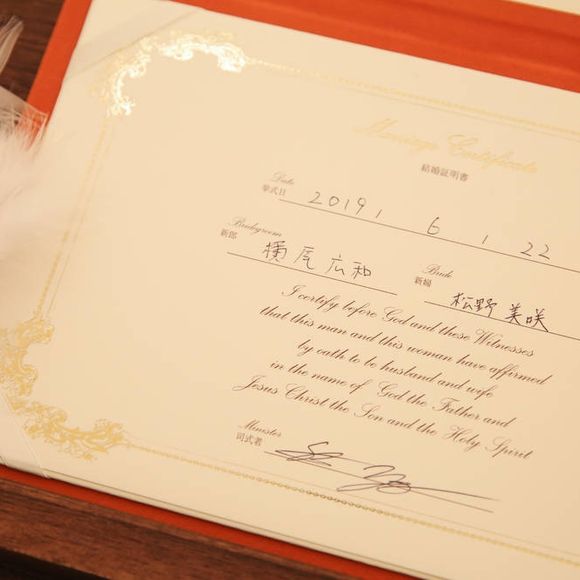 Marriage Certificate
結婚証明書
Date
挙式日 2019 / 6 / 22
Bridegroom
新郎 尾 広和
Bride
新婦 松野 美咲
I certify before God and these Witnesses
that this man and this woman have affirmed
by oath to be husband and wife
in the name of God the Father and
Jesus Christ the Son and the Holy Spirit
Minister
司式者